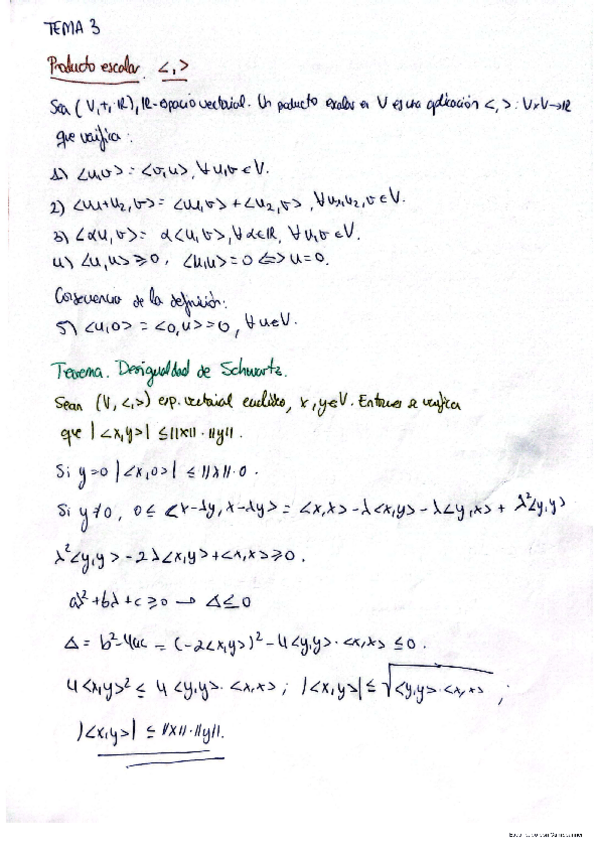 TEMA 3
Producto escalar. <,>
Sea (V,+,·ℝ), ℝ-espacio vectorial. Un producto escalar en V es una aplicación <,>: V×V→ℝ
que verifica:
1) <u,v> = <v,u>, ∀u,v∈V.
2) <u₁+u₂,v> = <u₁,v> + <u₂,v>, ∀u₁,u₂,v∈V.
3) <αu,v> = α<u,v>, ∀α∈ℝ, ∀u,v∈V.
4) <u,u> ≥ 0, <u,u> = 0 ⇔ u=0.
Consecuencia de la definición:
5) <u,0> = <0,u> = 0, ∀u∈V.
Teorema. Desigualdad de Schwartz.
Sean (V,<,>) esp. vectorial euclídeo, x,y∈V. Entonces se verifica
que |<x,y>| ≤ ||x||·||y||.
Si y=0 |<x,0>| ≤ ||x||·0.
Si y≠0, 0 ≤ <x-λy, x-λy> = <x,x> - λ<x,y> - λ<y,x> + λ²<y,y>
λ²<y,y> - 2λ<x,y> + <x,x> ≥ 0.
aλ² + bλ + c ≥ 0 → Δ ≤ 0
Δ = b²-4ac = (-2<x,y>)² - 4<y,y>·<x,x> ≤ 0.
4<x,y>² ≤ 4<y,y>·<x,x>; |<x,y>| ≤ √<y,y>·<x,x>;
|<x,y>| ≤ ||x||·||y||.